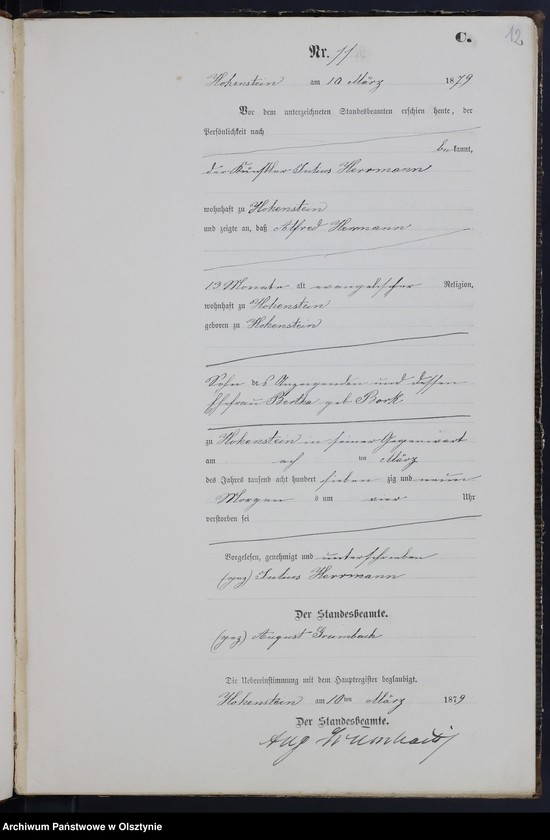 C.
12
Nr. 11
Hohenstein am 10 März 1879
Vor dem unterzeichneten Standesbeamten erschien heute, der
Persönlichkeit nach
bekannt,
der Julius Herrmann
wohnhaft zu Hohenstein
und zeigte an, daß Alfred Hermann
13 Monate alt evangelischer Religion,
wohnhaft zu Hohenstein
geboren zu Hohenstein
Sohn des Anzeigenden und dessen
Ehefrau Bertha geb Bork
zu Hohenstein in seiner Gegenwart
am ach ten März
des Jahres tausend acht hundert sieben zig und neun
Morgen s um vier Uhr
verstorben sei
Vorgelesen, genehmigt und unterschrieben
(gez) Julius Herrmann
Der Standesbeamte.
(gez) August Grumbach
Die Uebereinstimmung mit dem Hauptregister beglaubigt.
Hohenstein am 10ten März 1879
Der Standesbeamte.
Aug Grumbach
Archiwum Państwowe w Olsztynie